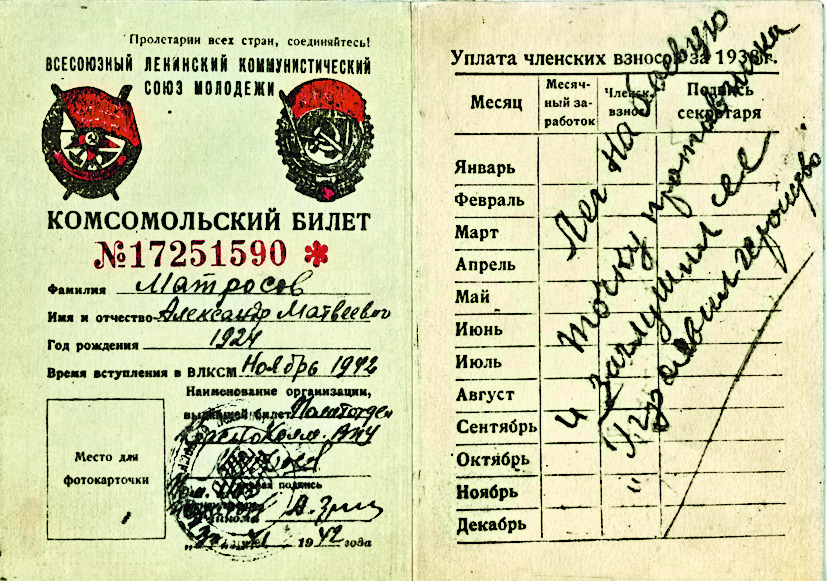 Пролетарии всех стран, соединяйтесь!
ВСЕСОЮЗНЫЙ ЛЕНИНСКИЙ КОММУНИСТИЧЕСКИЙ
СОЮЗ МОЛОДЕЖИ
КОМСОМОЛЬСКИЙ БИЛЕТ
№17251590 *
Фамилия Матросов
Имя и отчество Александр Матвеевич
Год рождения 1924
Время вступления в ВЛКСМ Ноябрь 1942
Наименование организации,
выдавшей билет Политотдел
Краснохолм. ВПУ
подпись
1942 года
Место для
фотокарточки
Уплата членских взносов за 1938 г.
Месяц
Месяч-
ный за-
работок
Членск.
взнос
Подпись
секретаря
Январь
Февраль
Март
Апрель
Май
Июнь
Июль
Август
Сентябрь
Октябрь
Ноябрь
Декабрь
Лег на боевую
точку противника
и заглушил ее
проявил геройство